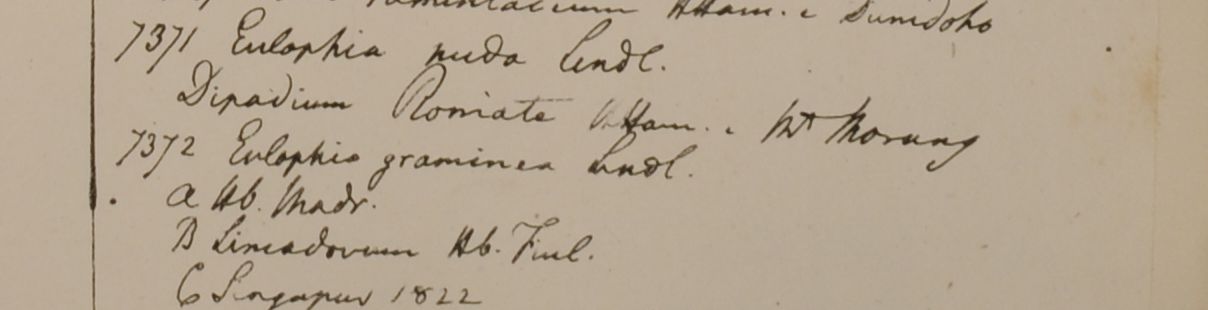 HHam. e Dumdoho
7371 Eulophia nuda Lindl.
Dipadium Romate HHam. e Mt Morung
7372 Eulophia graminea Lindl.
a Hb. Madr.
B Limadorum Hb. Finl.
C Singapur 1822